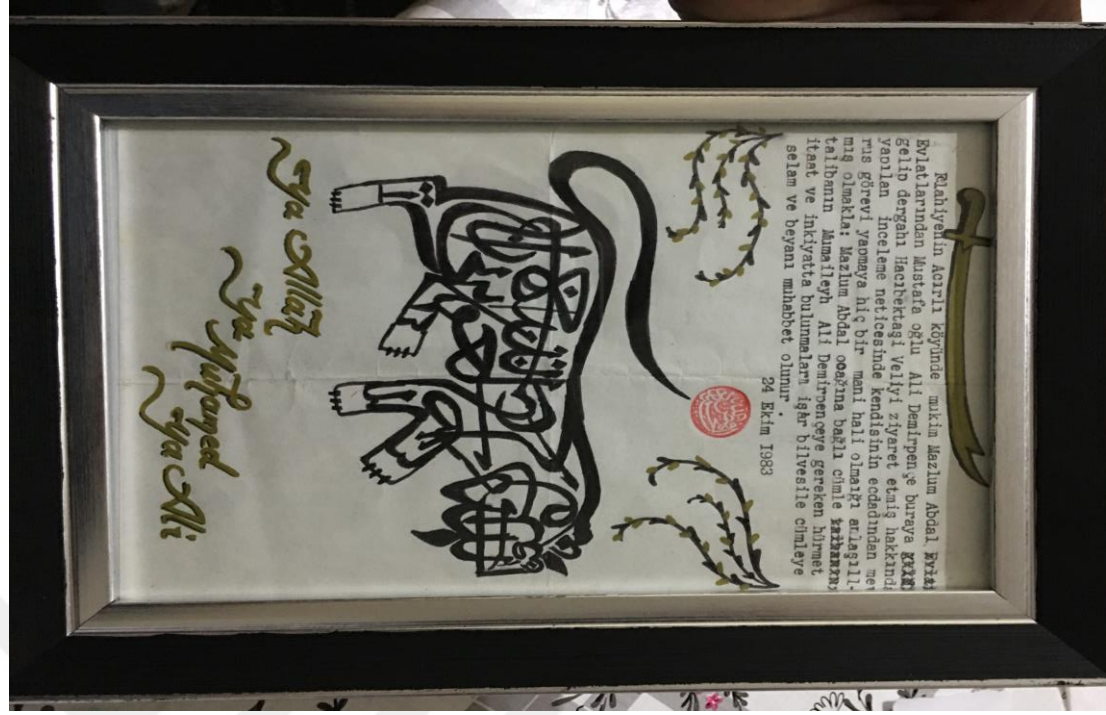 Elahiyenin Acırlı köyünde mukim Mazlum Abdal
Evlatlarından Mustafa oğlu Ali Demirpençe buraya
gelip dergahı Hacıbektaşi Veliyi ziyaret etmiş hakkında
yapılan inceleme neticesinde kendisinin ecdadından mev
rus görevi yapmaya hiç bir mani hali olmaığı anlaşıll-
mış olmakla: Mazlum Abdal ocağına bağlı cümle
talibanın Mumaileyh Ali Demirpençeye gereken hürmet
itaat ve inkiyatta bulunmaları işâr bilvesile cümleye
selam ve beyanı muhabbet olunur .
24 Ekim I983
Ya Allah
Ya Muhammed
Ya Ali